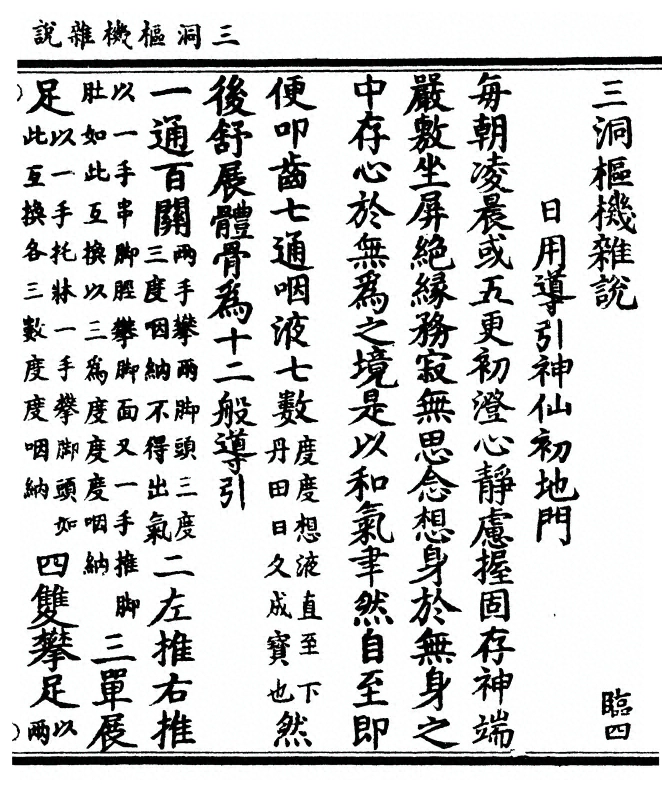 三洞樞機雜說
三洞樞機雜說 臨四
日用導引神仙初地門
每朝凌晨或五更初澄心靜慮握固存神端
嚴敷坐屏絕緣務寂無思念想身於無身之
中存心於無爲之境是以和氣聿然自至即
便叩齒七通咽液七數度度想液直至下丹田日久成寶也然
後舒展體骨爲十二般導引
一通百關兩手攀兩脚頭三度三度咽納不得出氣二左推右推
以一手串脚脛攀脚面又一手推脚肚如此互換以三爲度度度咽納三單展
足以一手托牀一手攀脚頭如此互換各三數度度咽納四雙攀足以兩